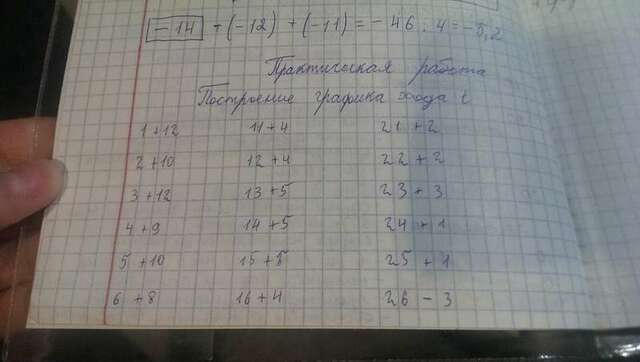 -14 + (-12) + (-11) = -46 : 4 = -5,2
Практическая работа
Построение графика хода t
1 +12 11 +4 21 +2
2 +10 12 +4 22 +2
3 +12 13 +5 23 +3
4 +9 14 +5 24 +1
5 +10 15 +5 25 +1
6 +8 16 +4 26 -3